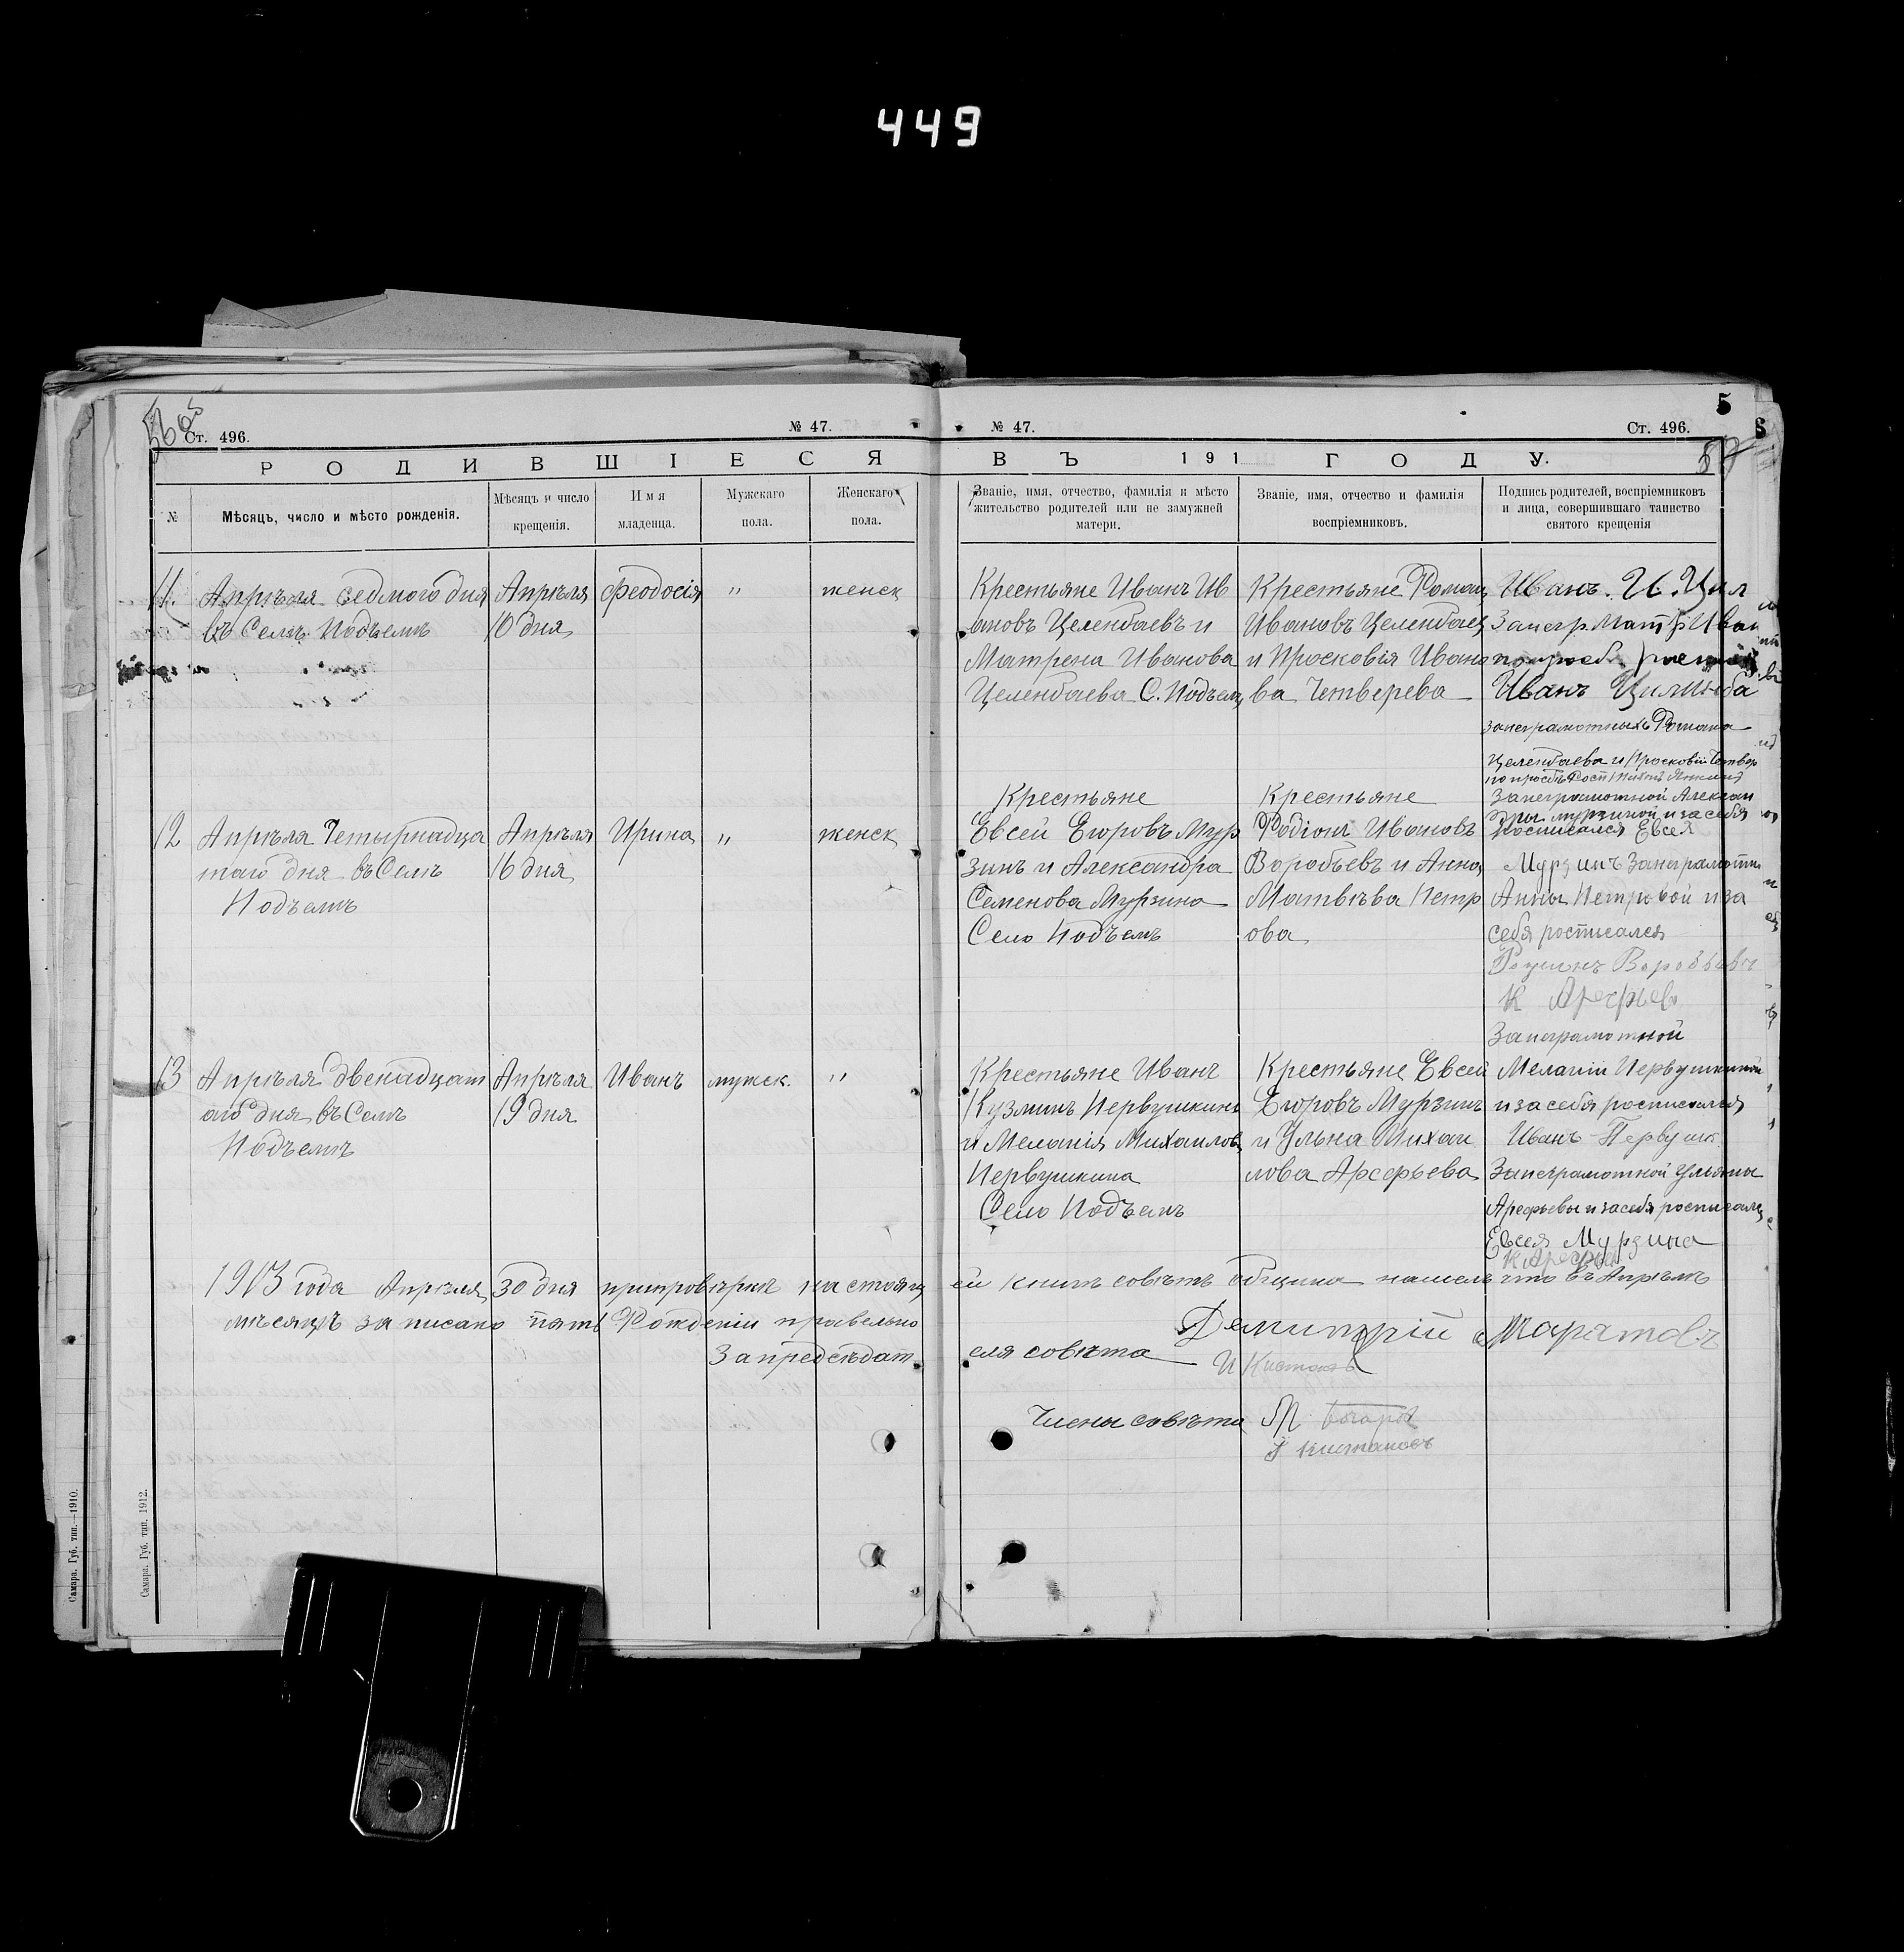 449
5
Ст. 496.
№ 47.
№ 47.
Ст. 496.
РОДИВШІЕСЯ
ВЪ 191 ГОДУ.
№
Мѣсяцъ, число и мѣсто рожденія.
Мѣсяцъ и число крещенія.
Имя младенца.
Мужскаго пола.
Женскаго пола.
Званіе, имя, отчество, фамилія и мѣсто жительство родителей или не замужней матери.
Званіе, имя, отчество и фамилія воспріемниковъ.
Подпись родителей, воспріемниковъ и лица, совершившаго таинство святого крещенія
11.
Апрѣля седмого дня
въ Селѣ Подъемѣ
Апрѣля
10 дня
Феодосія
"
женск
Крестьяне Иванъ Ив
ановъ Целендаевъ и
Матрена Иванова
Целендаева С. Подъем
Крестьяне Роман
Ивановъ Целендаев
и Просковія Ивано
ва Четверева
Иванъ. И. Цил
Занегр. Матр Иван
Иванъ
Занеграмотныхъ Романа
Целендаева и Просковіи Четвер
12
Апрѣля Четырнадца
таго дня въ Селѣ
Подъемѣ
Апрѣля
16 дня
Ирина
"
женск
Крестьяне
Евсей Егоровъ Мур
зинъ и Александра
Семенова Мурзина
Село Подъемъ
Крестьяне
Родіонъ Ивановъ
Воробьевъ и Анна
Матвѣва Петр
ова
Занеграмотной Алексан
дры мурзиной и за себя
росписался Евсея
Мурзинъ Занеграмотн
Анны Петровой и за
себя росписался
Воробьевъ
К Арефьев
13
Апрѣля двенадцат
аго дня въ Селѣ
Подъемѣ
Апрѣля
19 дня
Иванъ
мужск.
"
Крестьяне Иванъ
Кузминъ Первушкинъ
и Меланія Михаилов
Первушкина
Село Подъемъ
Крестьяне Евсей
Егоровъ Мурзинъ
и Ульна Михаи
лова Арефьева
Занеграмотной
Меланіи Первушкиной
и за себя росписался
Иванъ Первушк
Занеграмотной Ульяны
Арефьевы и за себя росписалс
Евсея Мурзина
К Арефьев
1913 года Апрѣля 30 дня припровѣркѣ настоящ ей книгѣ совѣтъ община нашелъ что въ Апрѣлѣ
мѣсяцѣ записано пять Рожденіи правельно
За предсѣдат еля совѣта Дмитрій Маратовъ
Члены совѣта
Кистановъ
Самара. Губ. тип.—1910.
Самара. Губ. тип. 1912.